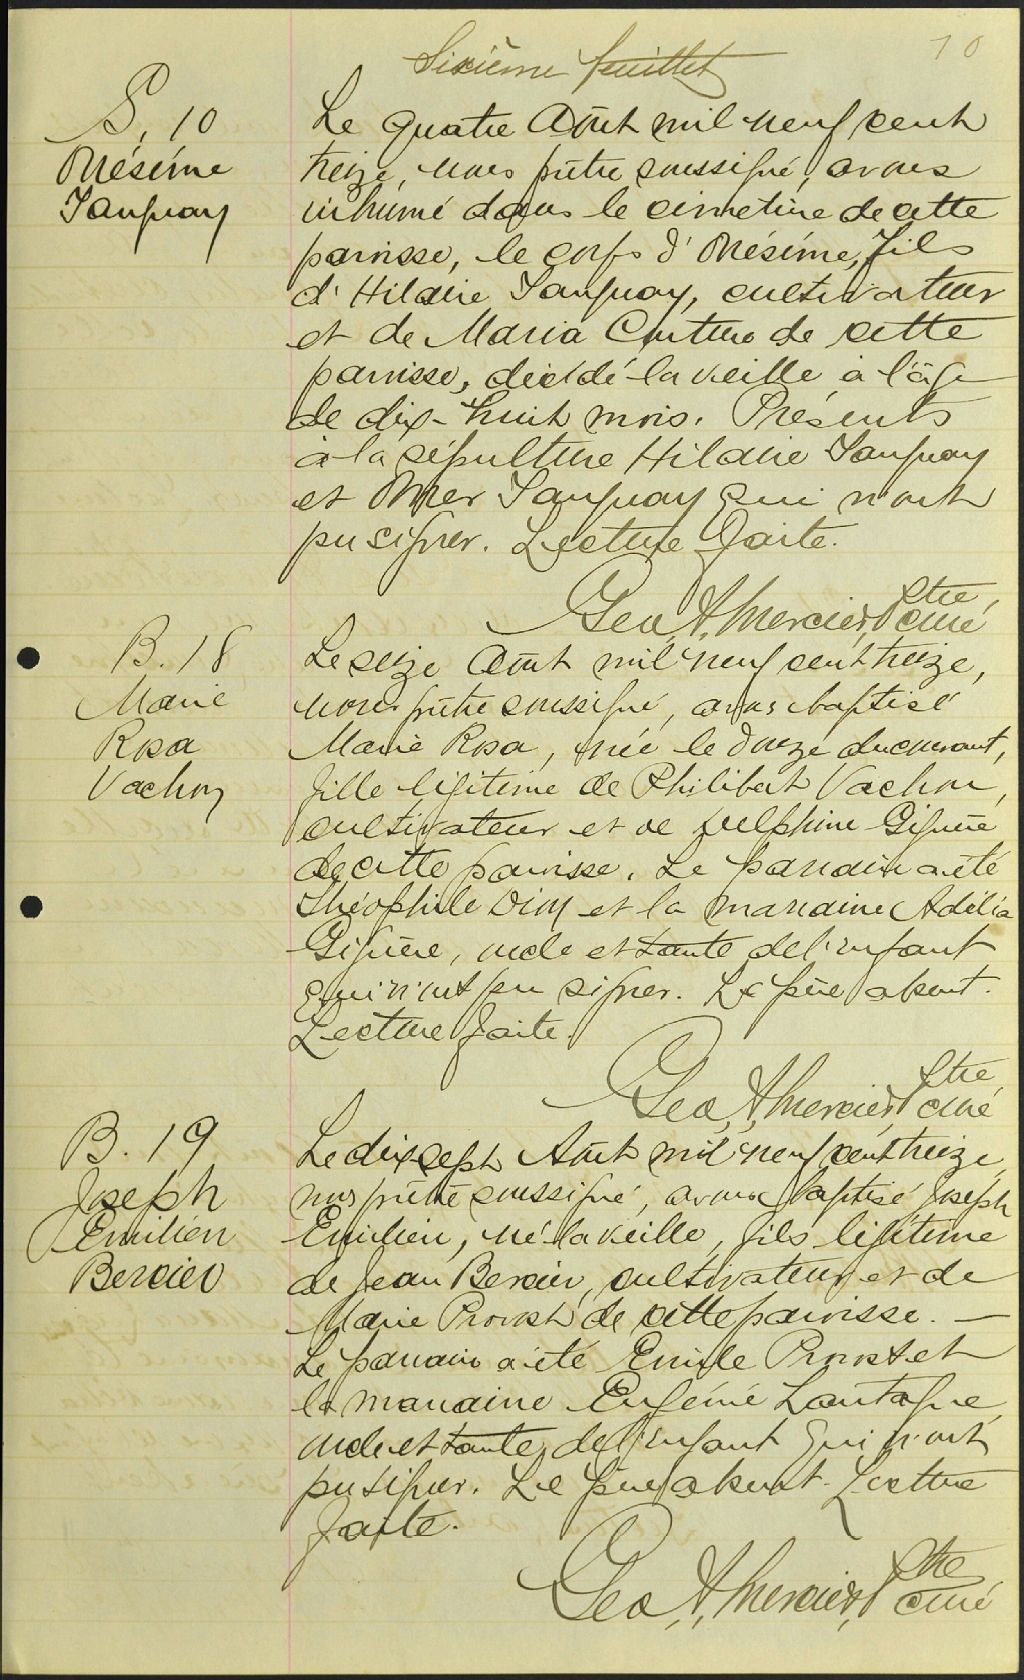 Sixième feuillet
10
S. 10
Onésime
Tanguay
Le quatre Août mil neuf cent
treize, nous prêtre soussigné, avons
inhumé dans le cimetière de cette
paroisse, le corps d'Onésime, fils
d'Hilaire Tanguay, cultivateur
et de Maria Couture de cette
paroisse, décédé la veille à l'âge
de dix-huit mois. Présents
à la sépulture Hilaire Tanguay
et Omer Tanguay qui n'ont
pu signer. Lecture faite.
Geo. A. Mercier, Ptre, curé
B. 18
Marie
Rosa
Vachon
Le seize Août mil neuf cent treize,
nous prêtre soussigné, avons baptisé
Marie Rosa, née le douze du courant,
fille légitime de Philibert Vachon,
cultivateur et de Delphine Giguère
de cette paroisse. Le parrain a été
Théophile Dion et la marraine Adélia
Giguère, oncle et tante de l'enfant
qui n'ont pu signer. Le père absent.
Lecture faite.
Geo. A. Mercier, Ptre, curé
B. 19
Joseph
Emilien
Bercier
Le dix sept Août mil neuf cent treize,
nous prêtre soussigné, avons baptisé Joseph
Emilien, né la veille, fils légitime
de Jean Bercier, cultivateur et de
Marie Provost de cette paroisse. —
Le parrain a été Emile Provost et
la marraine Eugénie Lantagne,
oncle et tante de l'enfant qui n'ont
pu signer. Le père absent. Lecture
faite.
Geo. A. Mercier, Ptre curé